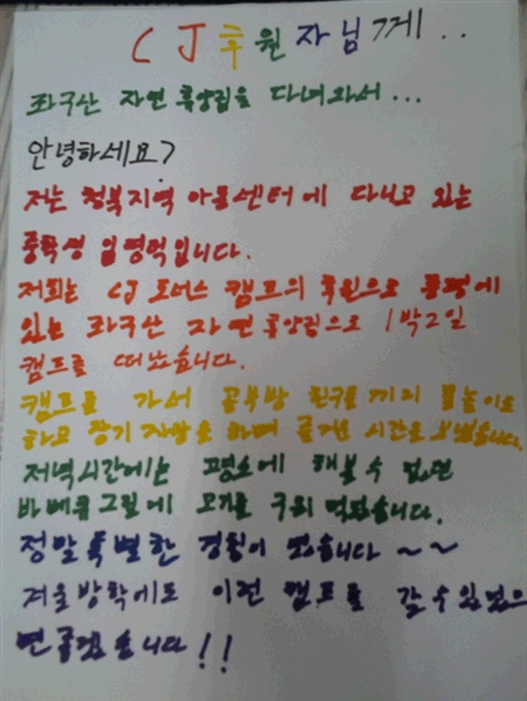 CJ후원자님께..
좌구산 자연 휴양림을 다녀와서...
안녕하세요?
저는 청북지역 아동센터에 다니고 있는
중학생 임명혁입니다.
저희는 CJ 도너스 캠프의 후원으로 증평에
있는 좌구산 자연 휴양림으로 1박2일
캠프를 떠났습니다.
캠프를 가서 공부방 친구들 끼리 물놀이도
하고 장기 자랑을 하며 즐거운 시간을 보냈습니다.
저녁시간에는 평소에 해볼 수 없던
바베큐 그릴에 고기를 구워 먹었습니다.
정말 특별한 경험이 됐습니다 ~~
겨울 방학에도 이런 캠프를 갈 수 있었으
면 좋겠습니다!!